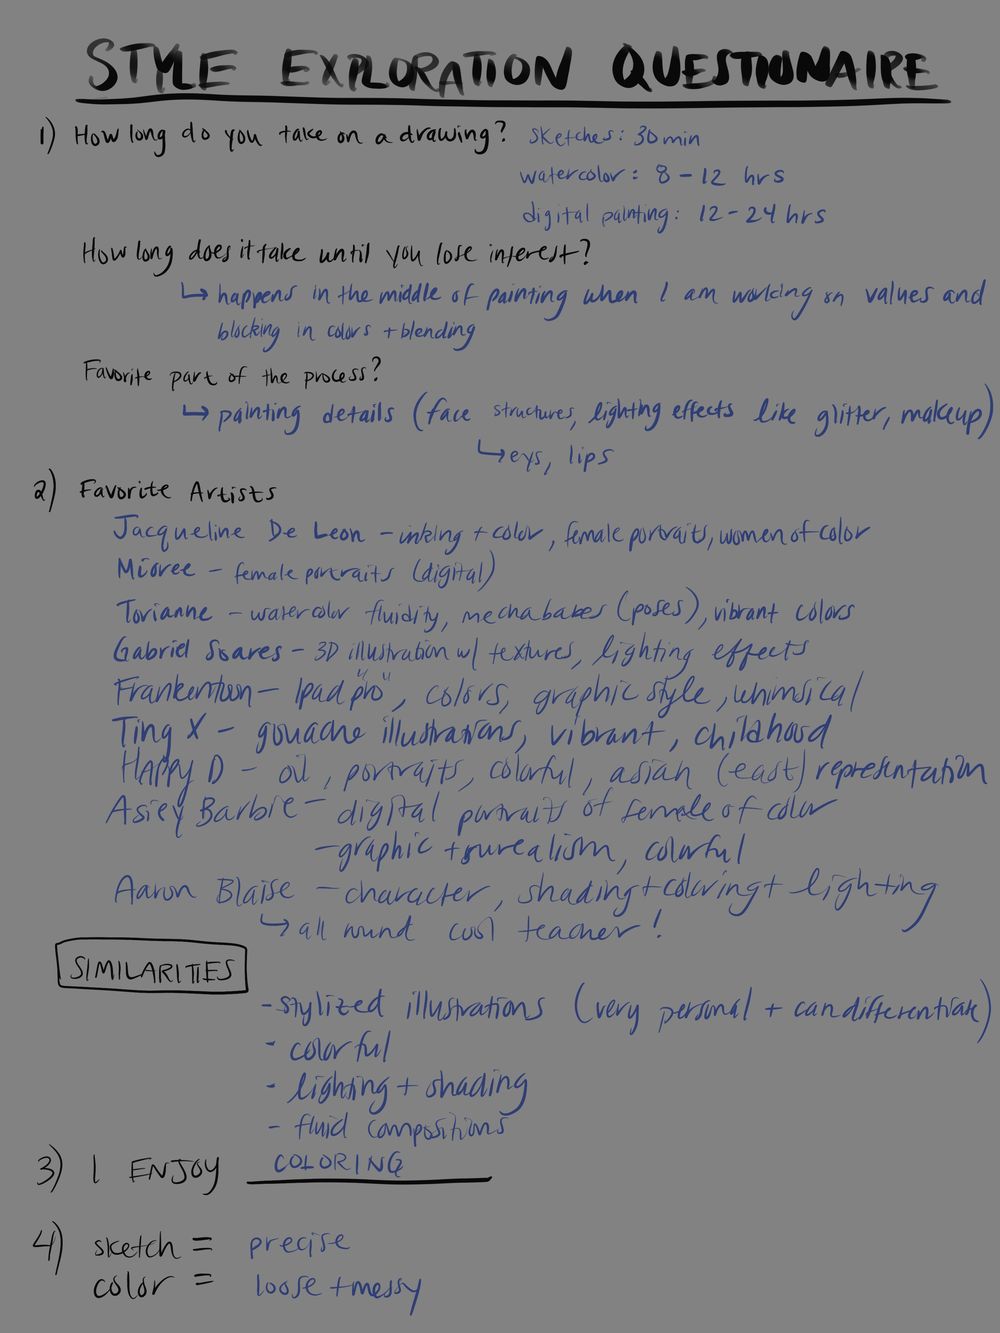 STYLE EXPLORATION QUESTIONAIRE
1) How long do you take on a drawing? sketches: 30 min
watercolor: 8 - 12 hrs
digital painting: 12 - 24 hrs
How long does it take until you lose interest?
↳ happens in the middle of painting when I am working on values and
blocking in colors + blending
Favorite part of the process?
↳ painting details (face structures, lighting effects like glitter, makeup)
↳ eys, lips
2) Favorite Artists
Jacqueline De Leon - inking + color, female portraits, women of color
Mioree - female portraits (digital)
Torianne - watercolor fluidity, mechababes (poses), vibrant colors
Gabriel Soares - 3D illustration w/ textures, lighting effects
Frankentoon - Ipad "pro", colors, graphic style, whimsical
Ting X - gouache illustrations, vibrant, childhood
HAPPY D - oil, portraits, colorful, asian (east) representation
Asiey Barbie - digital portraits of female of color
- graphic + surealism, colorful
Aaron Blaise - character, shading + coloring + lighting
↳ all round cool teacher!
SIMILARITIES
- stylized illustrations (very personal + can differentiate)
- colorful
- lighting + shading
- fluid compositions
3) I ENJOY COLORING
4) sketch = precise
color = loose + messy